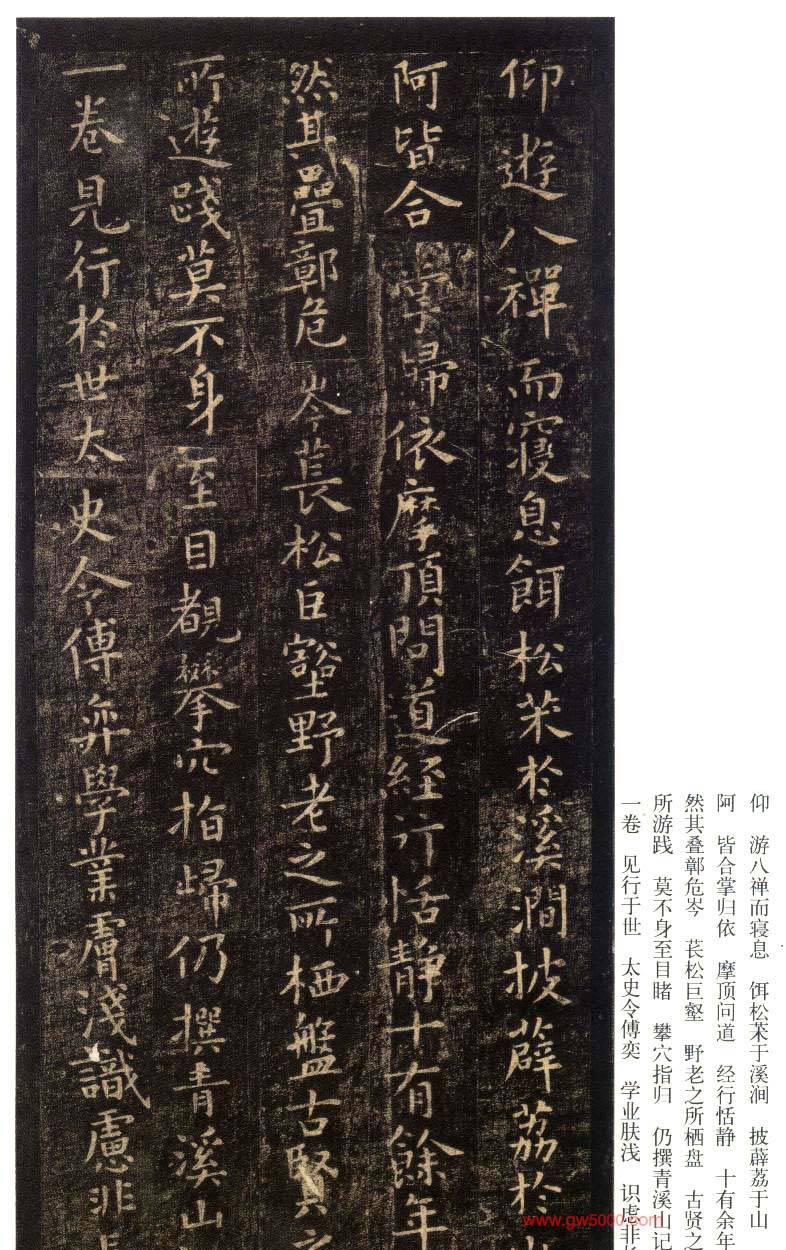 仰遊八禪而寢息餌松茱於溪澗披薜荔於山
阿皆合掌歸依摩頂問道經行恬静十有餘年
然其疊鄣危岑萇松巨壑野老之所栖盤古賢之
所遊踐莫不身至目覩攀穴指歸仍撰青溪山
一卷見行於世太史令傅弈學業膚淺識慮非
仰 游八禅而寝息 饵松茱于溪涧 披薜荔于山
阿 皆合掌归依 摩顶问道 经行恬静 十有余年
然其叠鄣危岑 苌松巨壑 野老之所栖盘 古贤之
所游践 莫不身至目睹 攀穴指归 仍撰青溪山记
一卷 见行于世 太史令傅奕 学业肤浅 识虑非
www.gw5000.com